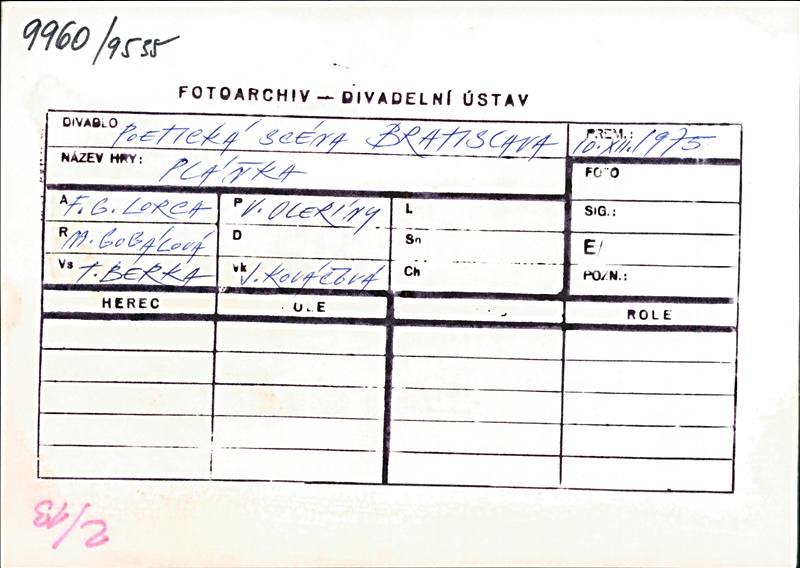 9960/9535
FOTOARCHIV — DIVADELNÍ ÚSTAV
DIVADLO POETICKÁ SCÉNA BRATISLAVA PREM.: 10.XII.1975
NÁZEV HRY: PLÁŇKA
FOTO
A F. G. LORCA P V. OLERÍNY L SIG.:
R M. GOGÁLOVÁ D Sn E/
Vs T. BERKA Vk J. KOVÁČOVÁ Ch POZN.:
HEREC ROLE
2/13